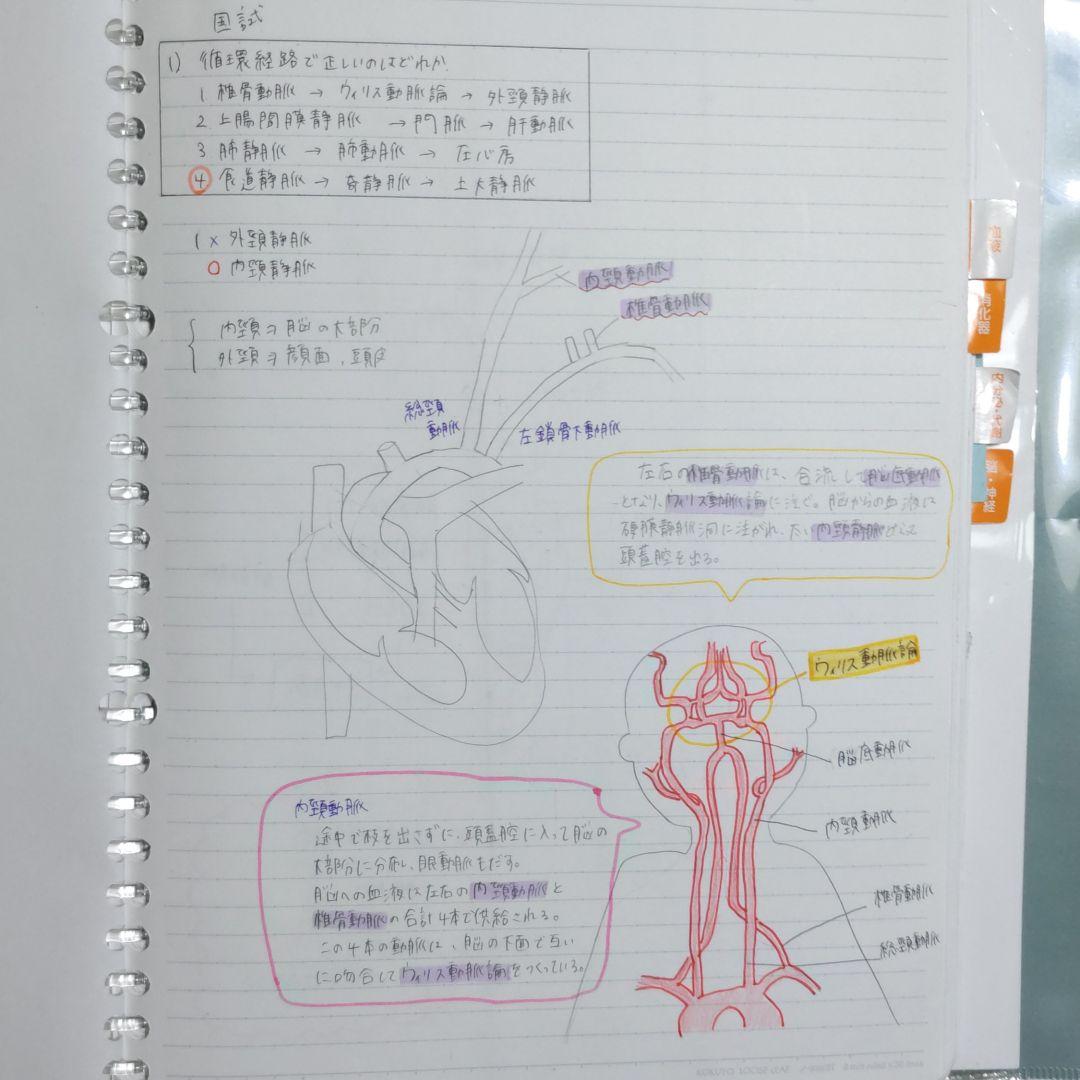 国試
1) 循環経路で正しいのはどれか.
1 椎骨動脈 → ウィリス動脈論 → 外頸静脈
2 上腸間膜静脈 → 門脈 → 肝動脈
3 肺静脈 → 肺動脈 → 左心房
4 食道静脈 → 奇静脈 → 上大静脈
1 × 外頸静脈
○ 内頸静脈
内頸⇒脳の大部分
外頸⇒顔面、頭皮
内頸動脈
椎骨動脈
総頸
動脈
左鎖骨下動脈
左右の椎骨動脈は、合流して脳底動脈
となり、ウィリス動脈論に注ぐ。脳からの血液は
硬膜静脈洞に注がれ、太い内頸静脈となって
頭蓋腔を出る。
ウィリス動脈論
脳底動脈
内頸動脈
椎骨動脈
総頸動脈
内頸動脈
途中で枝を出さずに、頭蓋腔に入って脳の
大部分に分布し、眼動脈もだす。
脳への血液は左右の内頸動脈と
椎骨動脈の合計4本で供給される。
この4本の動脈は、脳の下面で互い
に吻合してウィリス動脈論をつくっている。
血液
消化器
内分泌・代謝
脳・神経